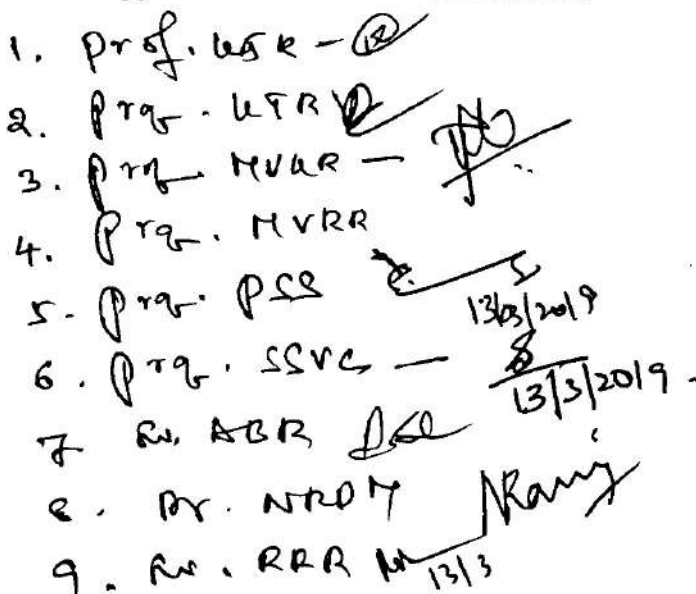 1. Prof. KSR -
2. Prof. KTR
3. Prof. MVKR -
4. Prof. MVRR
5. Prof. PSS
13/03/2019
6. Prof. SSVG -
13/3/2019.
7 ABR
8. Dr. NRDM
9. RRR
13/3